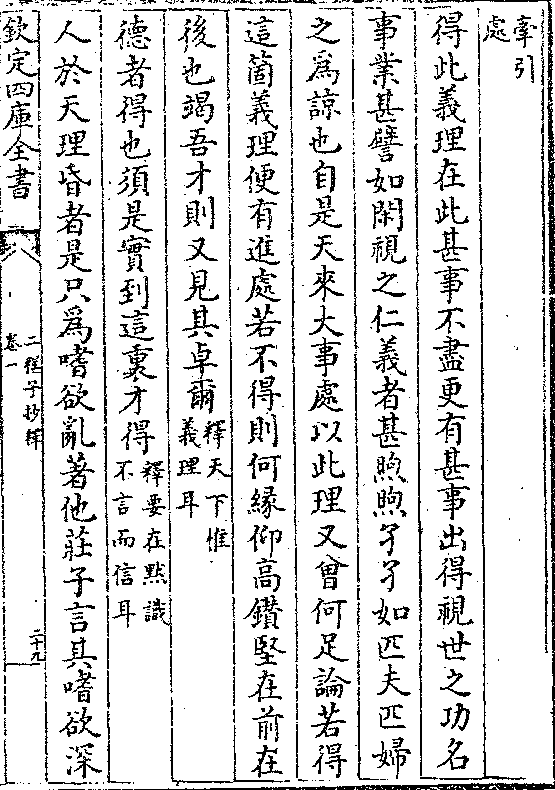 牽引
處
得此義理在此甚事不盡更有甚事出得視世之功名
事業甚譬如閑視之仁義者甚煦煦孑孑如匹夫匹婦
之為諒也自是天來大事處以此理又曾何足論若得
這箇義理便有進處若不得則何緣仰高鑽堅在前在
後也竭吾才則又見其卓爾釋天下惟
義理耳
德者得也須是實到這裏才得釋要在黙識
不言而信耳
人於天理昏者是只為嗜欲亂著他莊子言其嗜欲深
欽定四庫全書
二程子抄釋
卷一
二十九